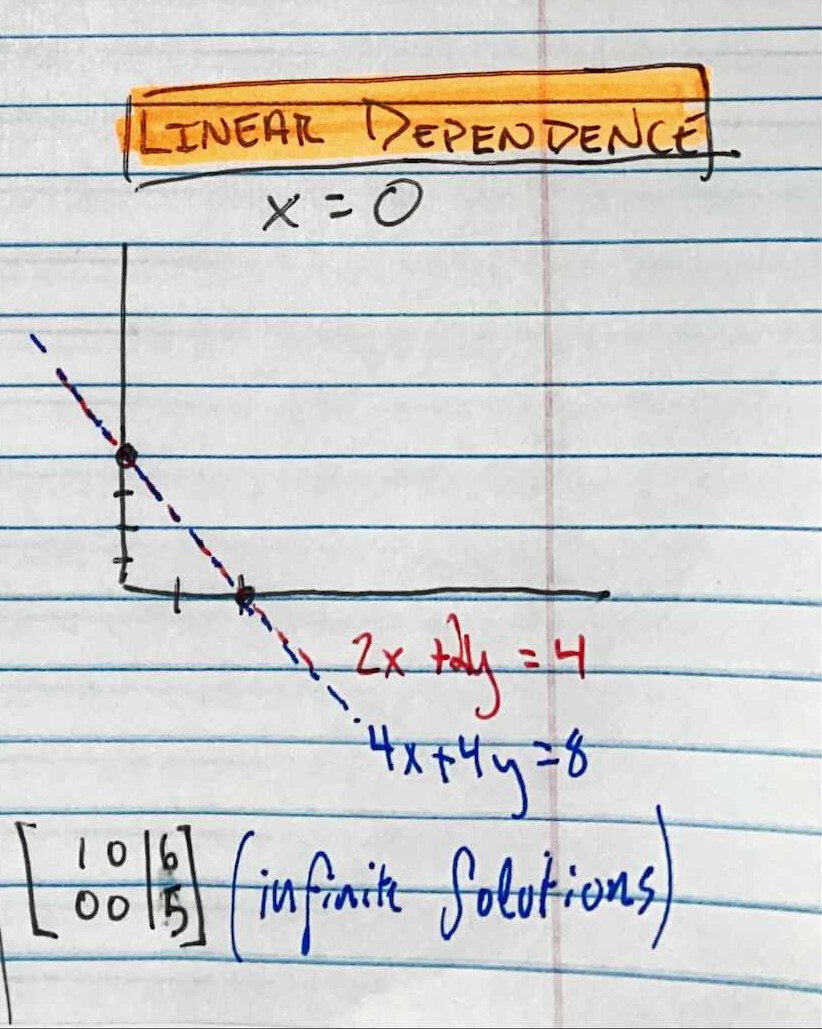 LINEAR DEPENDENCE
x = 0
2x + 2y = 4
4x + 4y = 8
[ 1 0 | 6
0 0 | 5 ] (infinite Solutions)